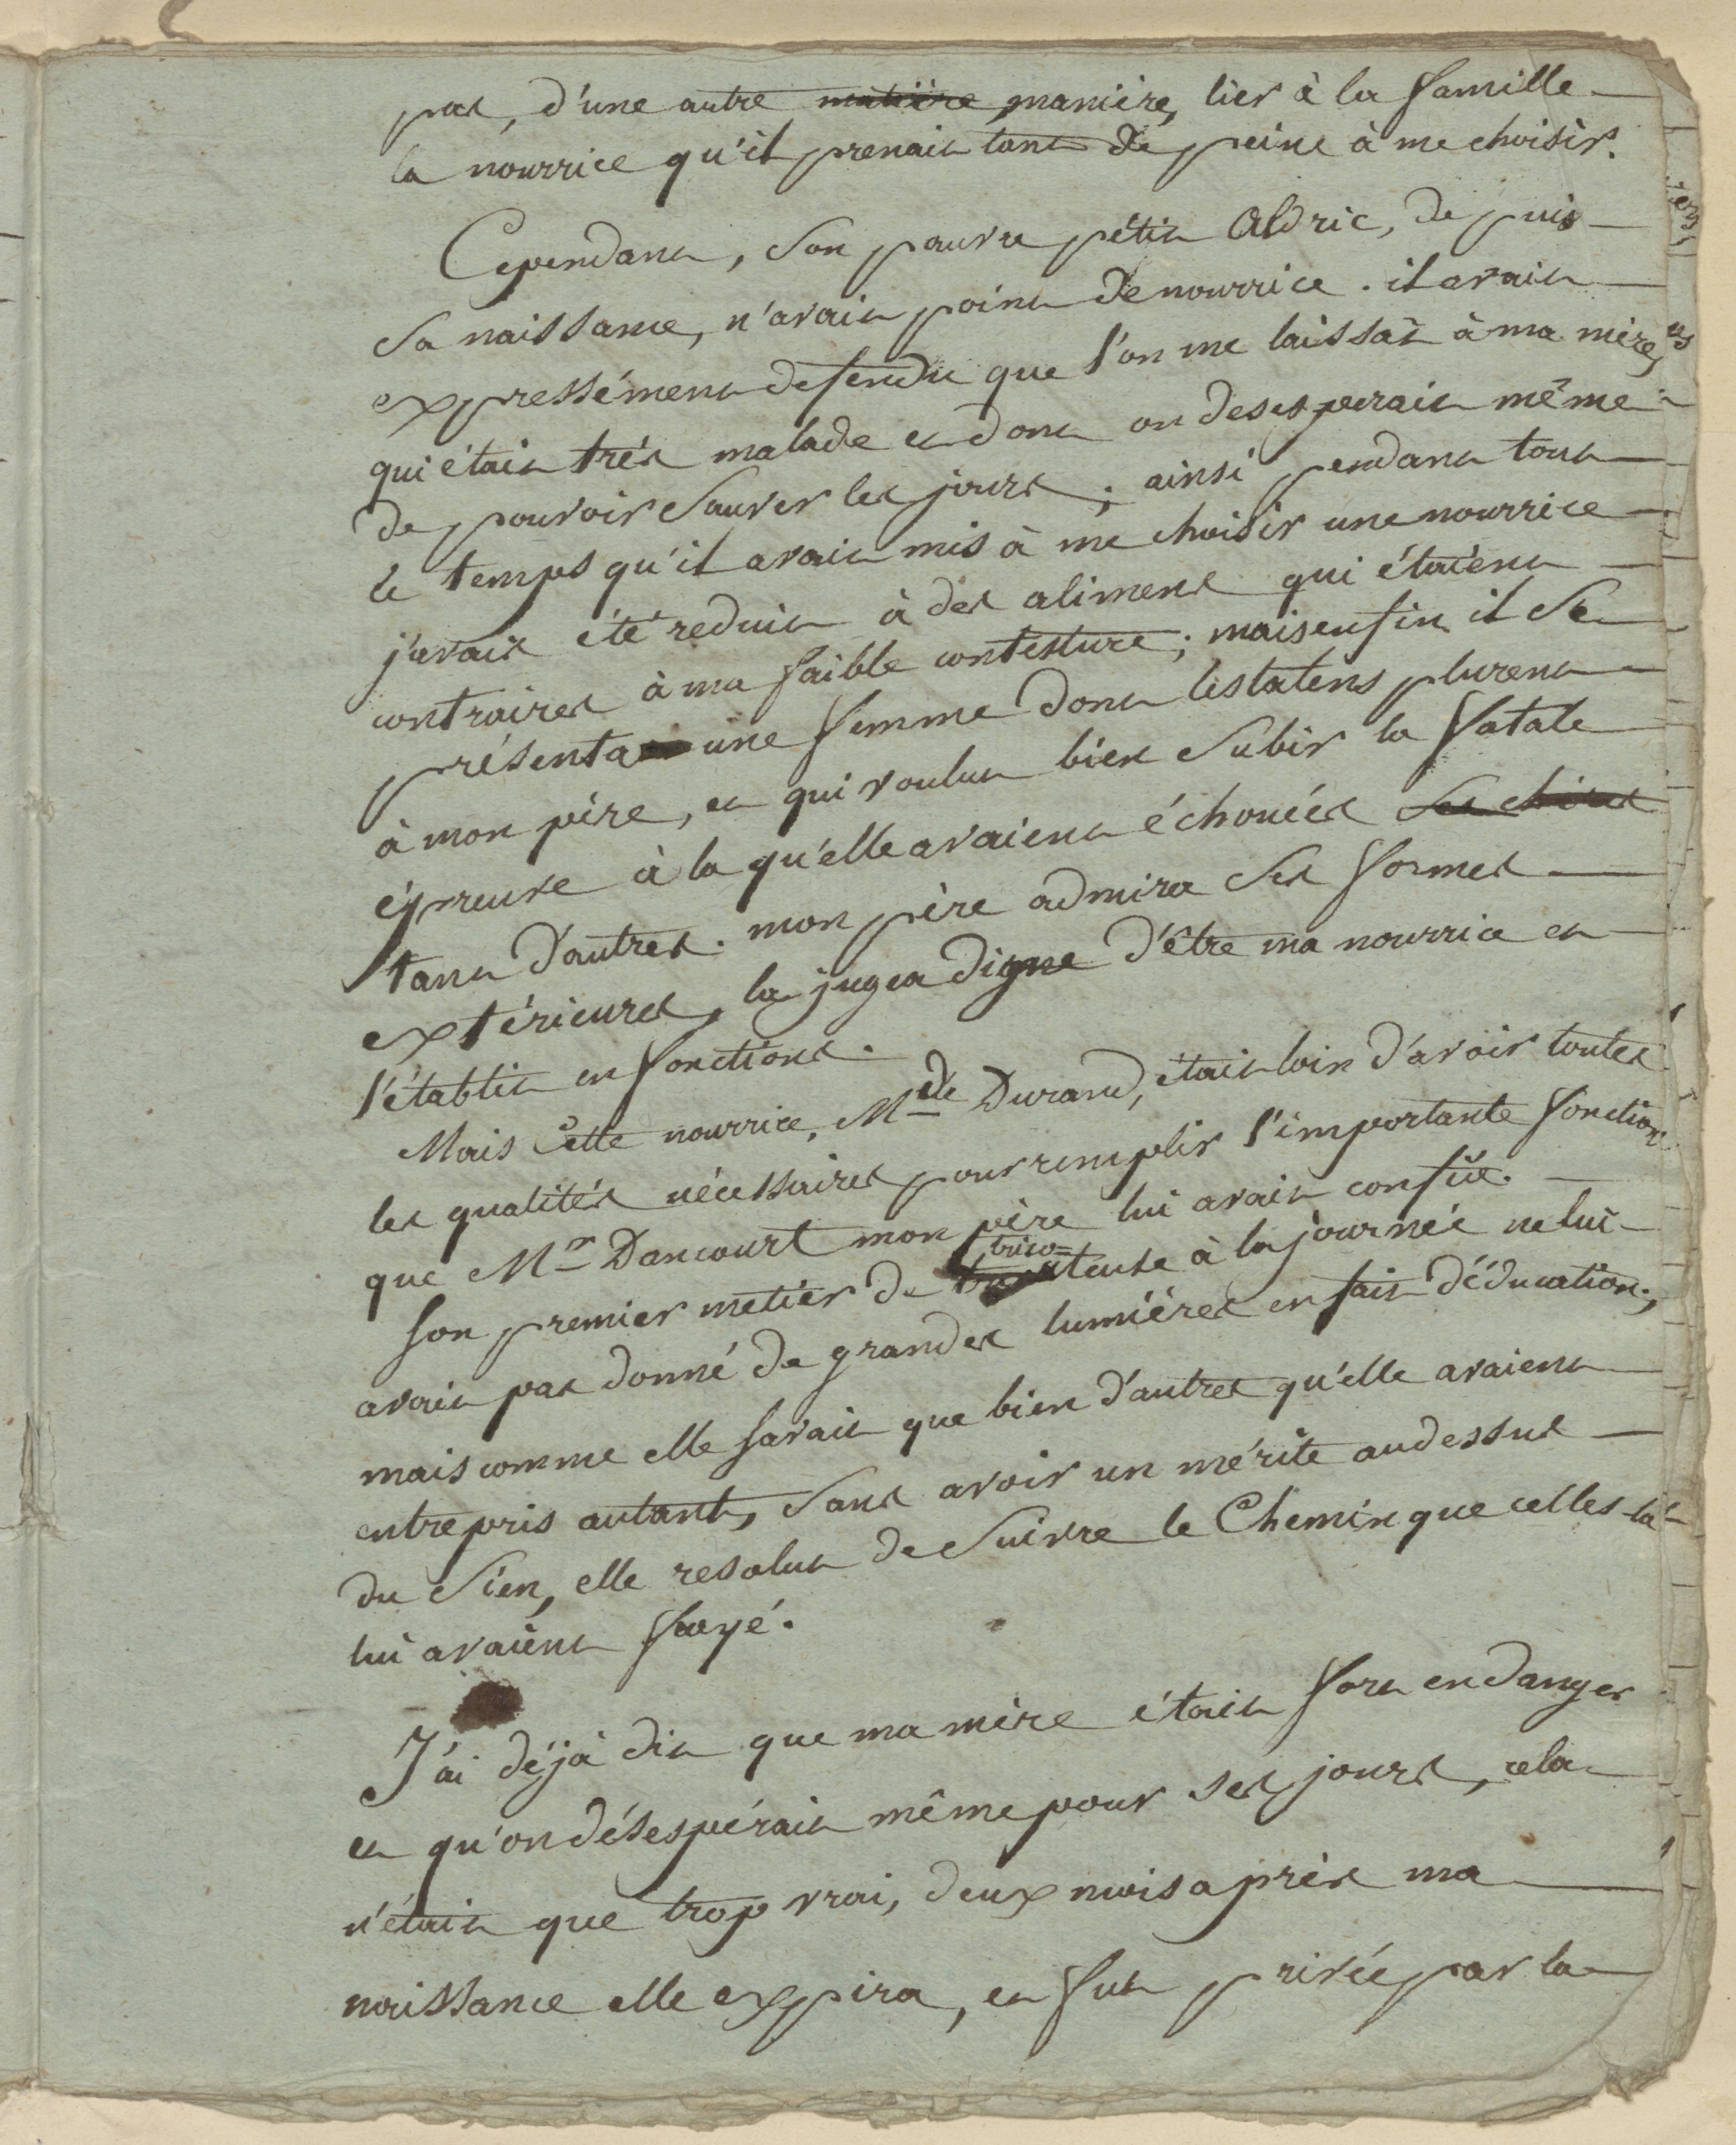 pas, d'une autre matière manière, lier à la famille
la nourrice qu'il prenait tant de peine à me choisir.
Cependant, son pauvre pétit Aldric, depuis
sa naissance, n'avait point de nourrice. il avait
expressément defendu que l'on me laissât à ma mère,
qui était très malade et dont on desesperait même
de pouvoir sauver les jours; ainsi pendant tout
le temps qu'il avait mis à me choisir une nourrice
j'avais été reduit à des alimens qui étaient
contraires à ma faible contesture; mais enfin il se
présenta une femme dont les talens plurent
à mon père, et qui voulut bien subir la fatale
épreuve à la qu'elle avaient échouées
tant d'autres. mon père admira ses formes
extérieures, la jugea digne d'être ma nourrice et
l'établit en fonctions.
Mais Cette nourrice, Mde Durand, était loin d'avoir toutes
les qualités nécessaires pour remplir l'importante fonction
que Mr Dancourt mon père lui avait confiée.
son premier metier de tricoteuse à la journée ne lui
avait pas donné de grandes lumières en fait d'éducation;
mais comme elle savait que bien d'autres qu'elle avaient
entrepris autant, sans avoir un mérite audessus
du sien, elle resolut de suivre le Chemin que celles-là
lui avaient frayé.
J'ai déjà dit que ma mère était fort en danger
et qu'on désespérait même pour ses jours, cela
n'était que trop vrai, deux mois après ma
naissance elle expira, et fut privée par la